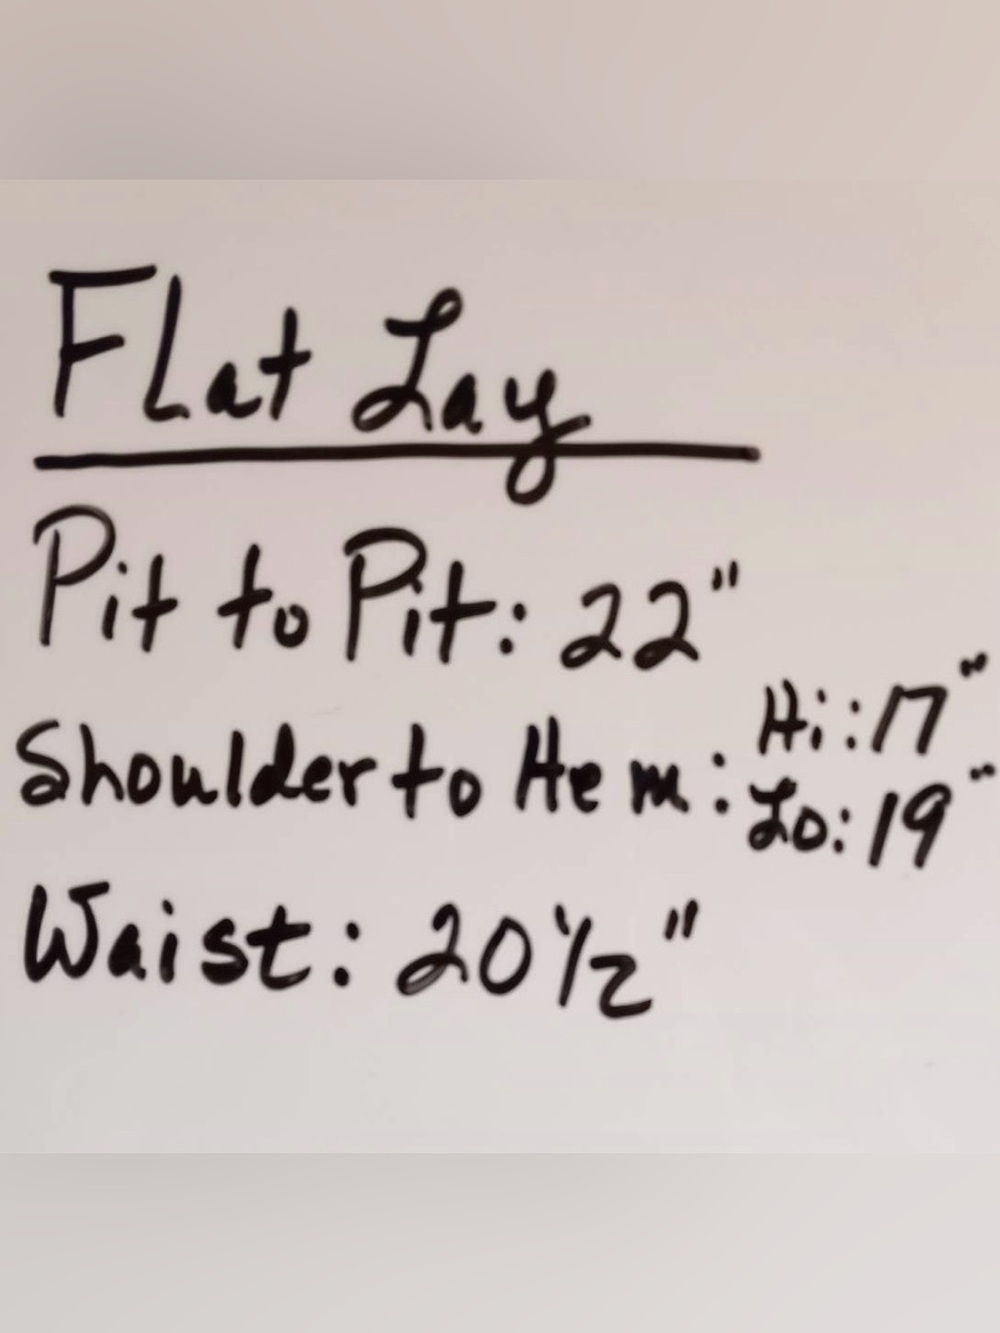 FLat Lay
Pit to Pit: 22"
Shoulder to Hem: Hi: 17"
Lo: 19"
Waist: 20 1/2"